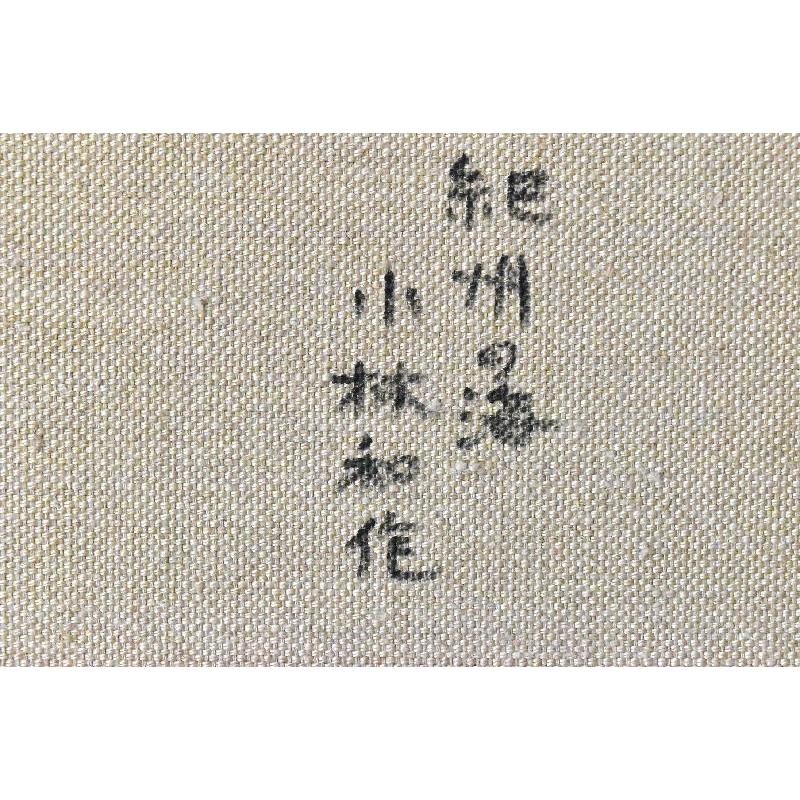 紀州の海
小林和作